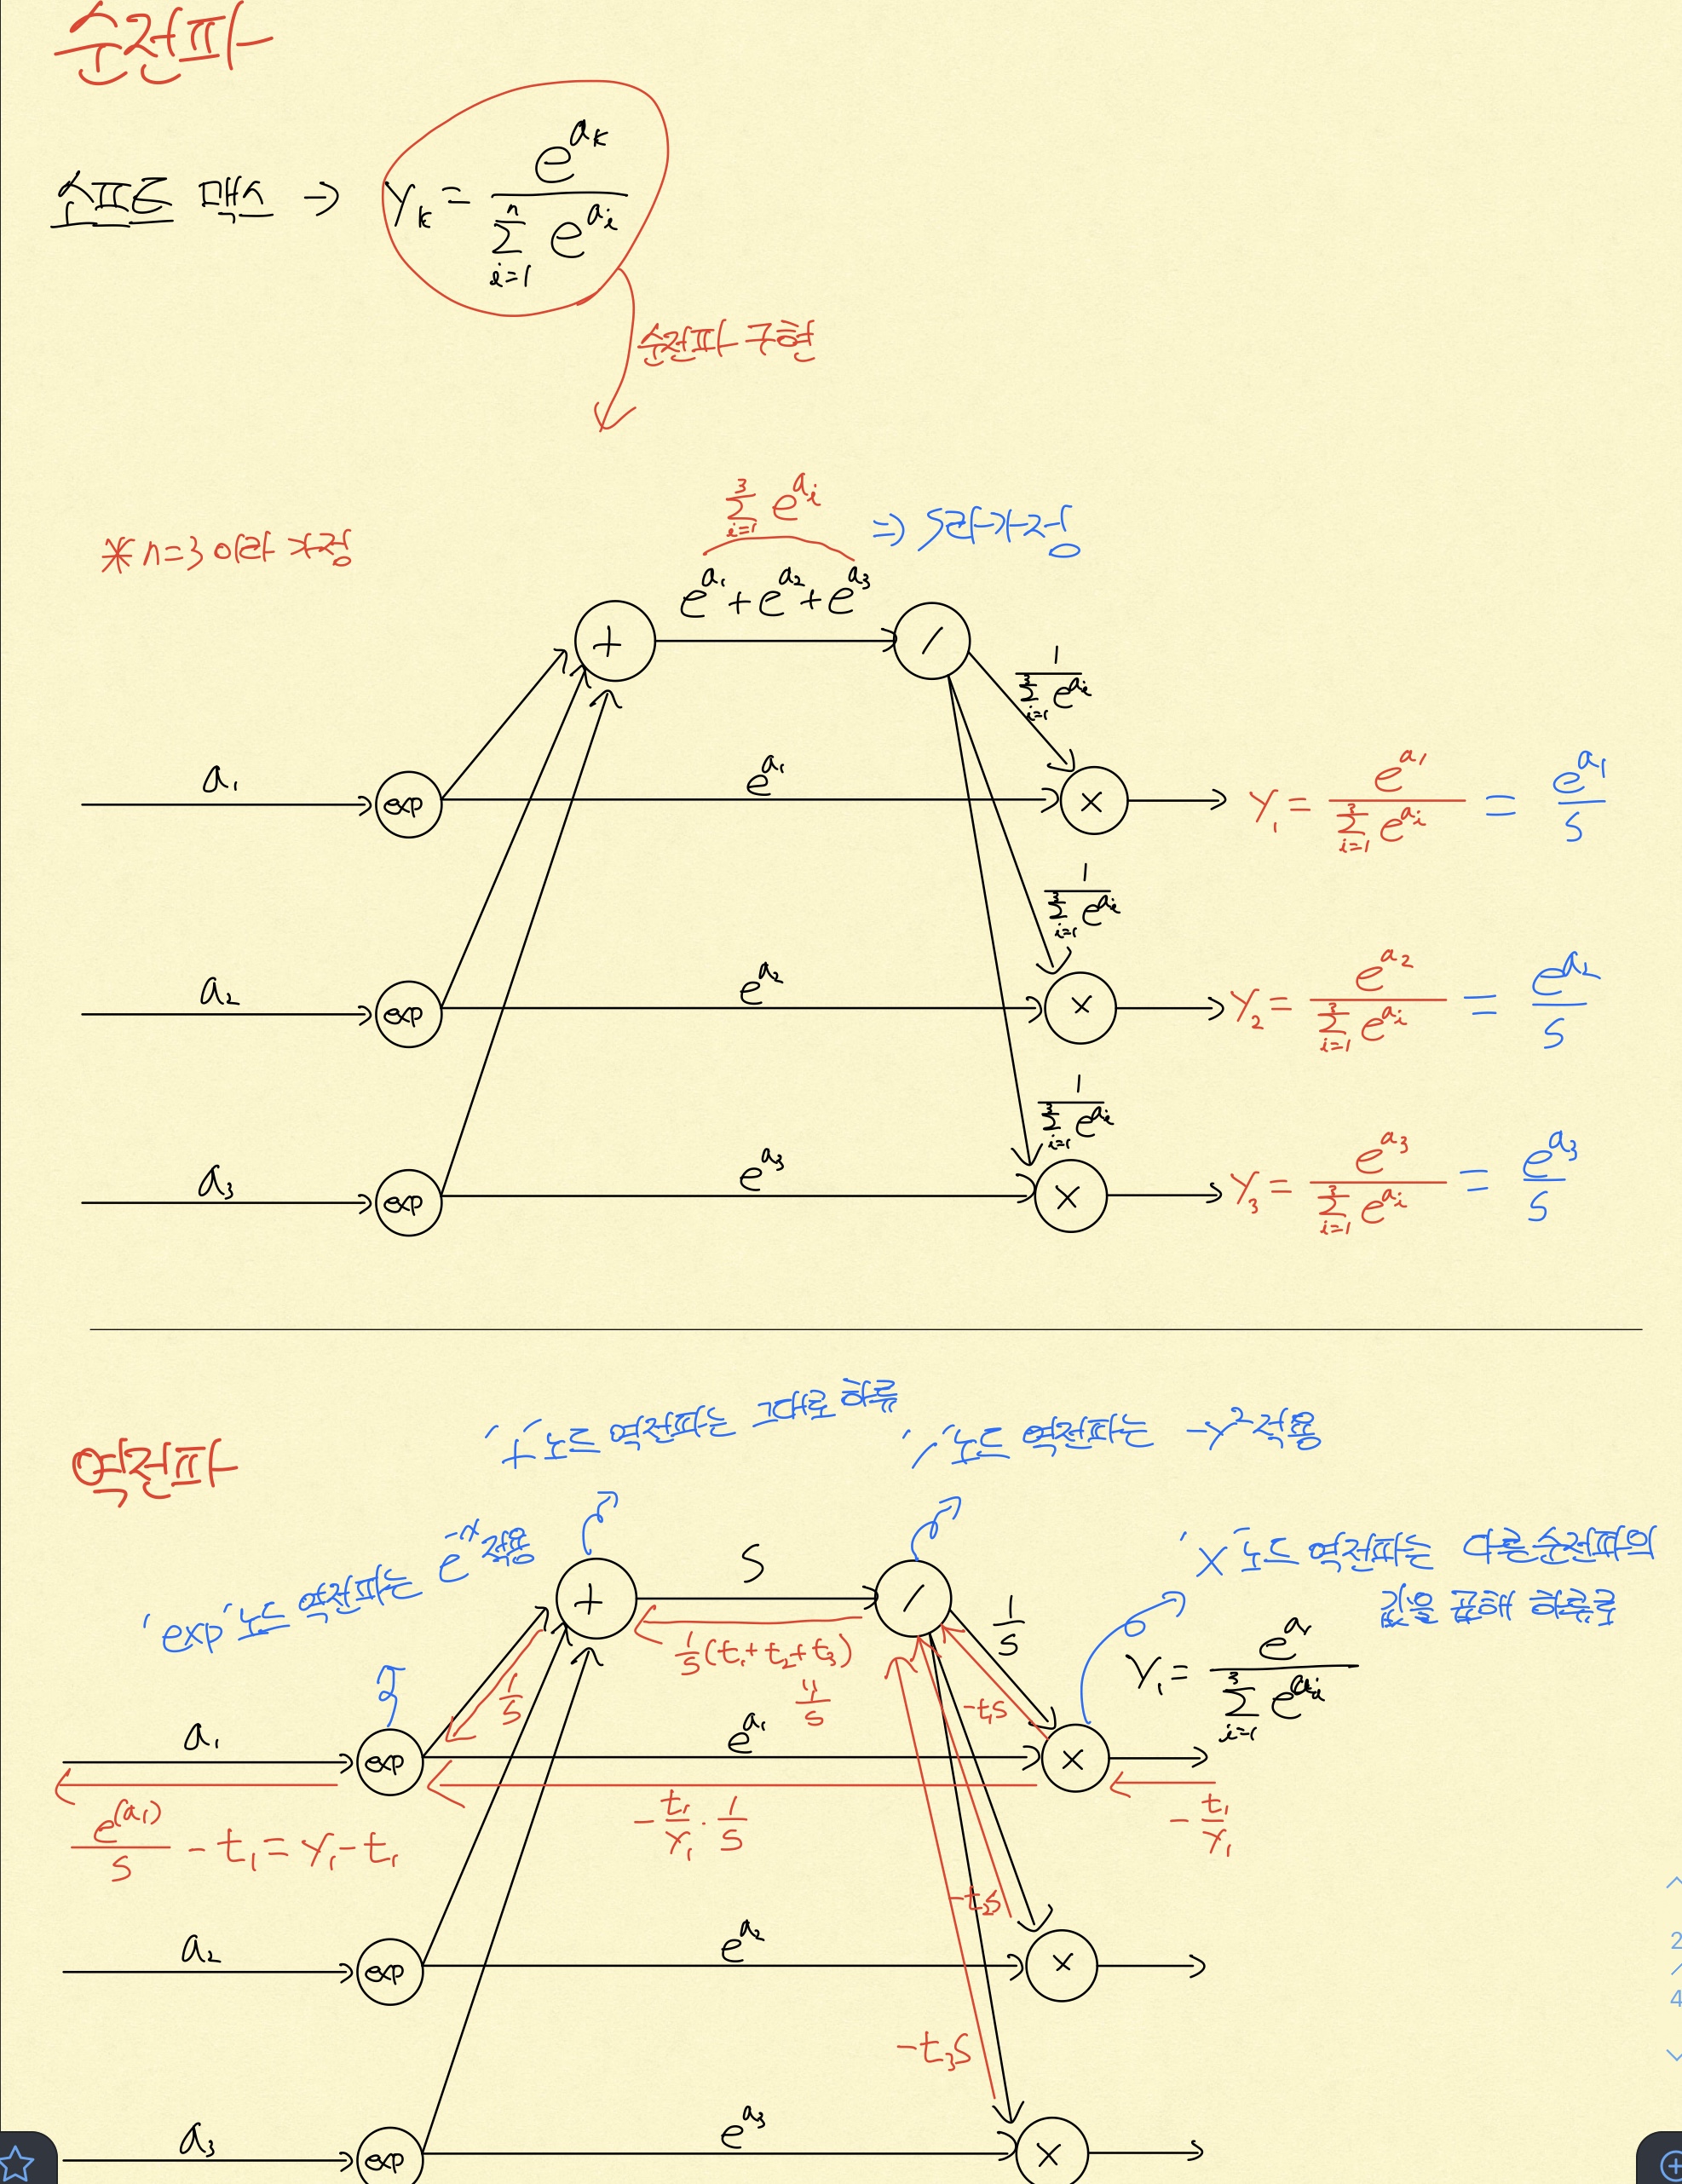 순전파
소프트 맥스 → y_k = e^{a_k} / Σ_{i=1}^{n} e^{a_i}
순전파 구현
Σ_{i=1}^{3} e^{a_i} ⇒ S라 가정
※ n=3 이라 가정
e^{a_1} + e^{a_2} + e^{a_3}
+ /
1 / Σ_{i=1}^{3} e^{a_i}
a_1 exp e^{a_1} × y_1 = e^{a_1} / Σ_{i=1}^{3} e^{a_i} = e^{a_1} / S
1 / Σ_{i=1}^{3} e^{a_i}
a_2 exp e^{a_2} × y_2 = e^{a_2} / Σ_{i=1}^{3} e^{a_i} = e^{a_2} / S
1 / Σ_{i=1}^{3} e^{a_i}
a_3 exp e^{a_3} × y_3 = e^{a_3} / Σ_{i=1}^{3} e^{a_i} = e^{a_3} / S
역전파
'+' 노드 역전파는 그대로 하류
'/' 노드 역전파는 -y² 적용
'exp' 노드 역전파는 e^{-x} 적용
'×' 노드 역전파는 다른 순전파의
값을 곱해 하류로
+ S / 1/S
1/S (t_1 + t_2 + t_3)
1/S
y_1 = e^{a_1} / Σ_{i=1}^{3} e^{a_i}
1/S
-t_1S
a_1 exp e^{a_1} ×
e^{(a_1)} / S - t_1 = y_1 - t_1
- t_1/y_1 · 1/S
- t_1/y_1
-t_2S
a_2 exp e^{a_2} ×
-t_3S
a_3 exp e^{a_3} ×
2
/
4